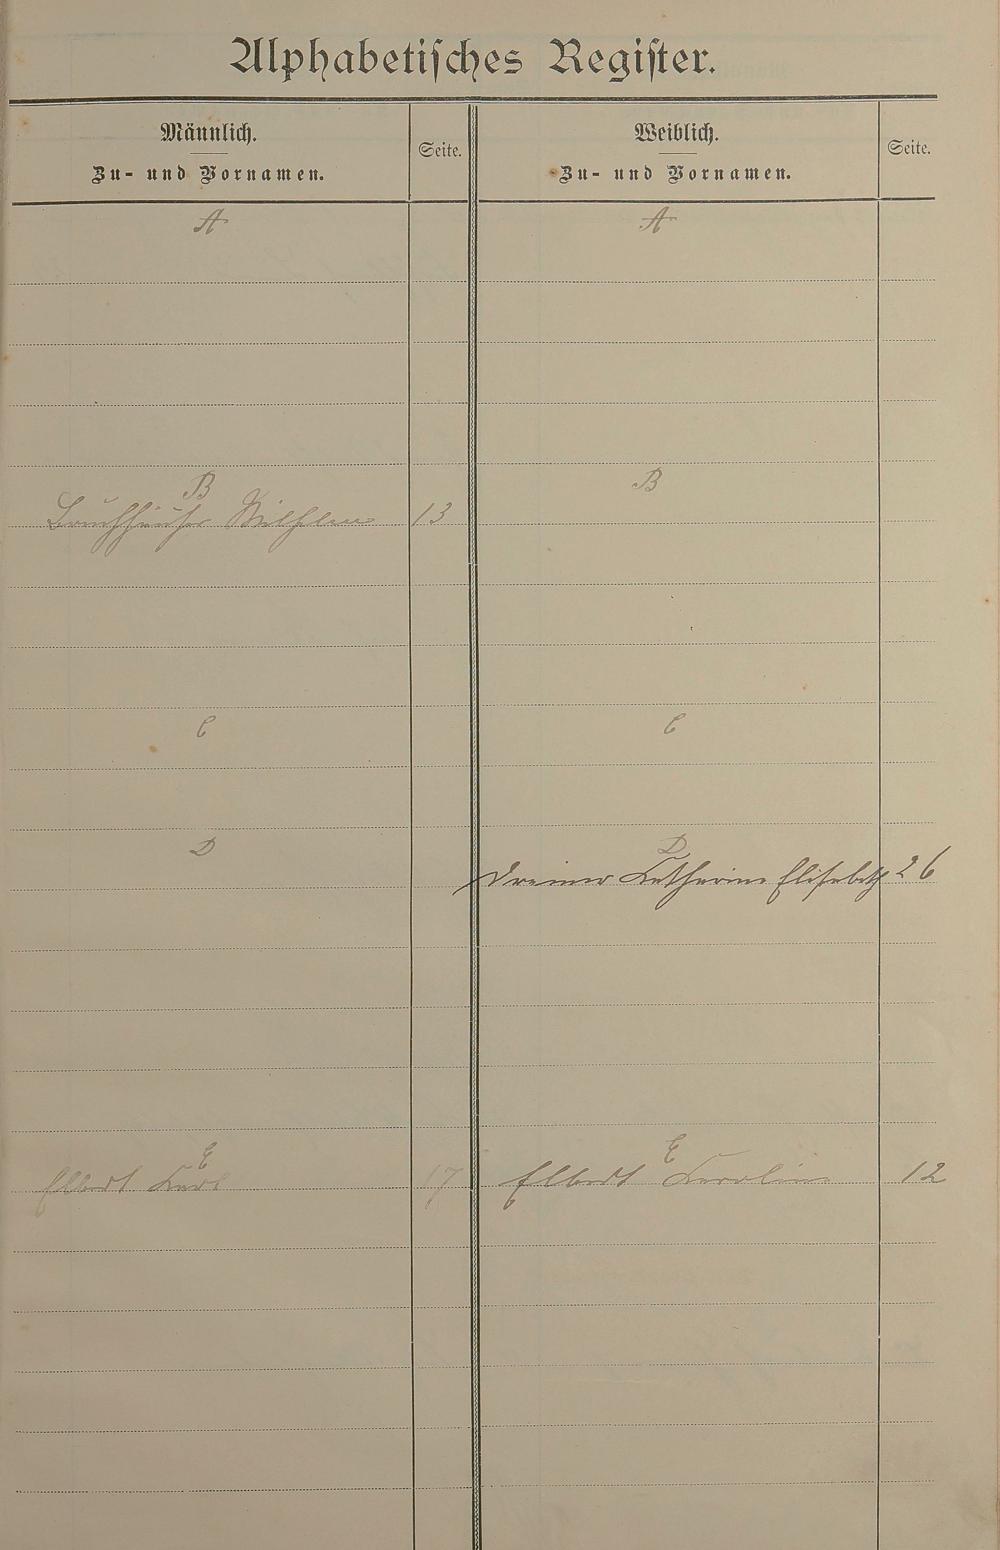 Alphabetisches Register.
Männlich.
Zu- und Vornamen.
Seite.
Weiblich.
Zu- und Vornamen.
Seite.
A
A
B
B
Bruchhäuser Wilhelm 13
C
C
D
D
Dreiner Katharine Elisabeth 26
E
E
Elbert Karl 17
Elbert Karoline 12